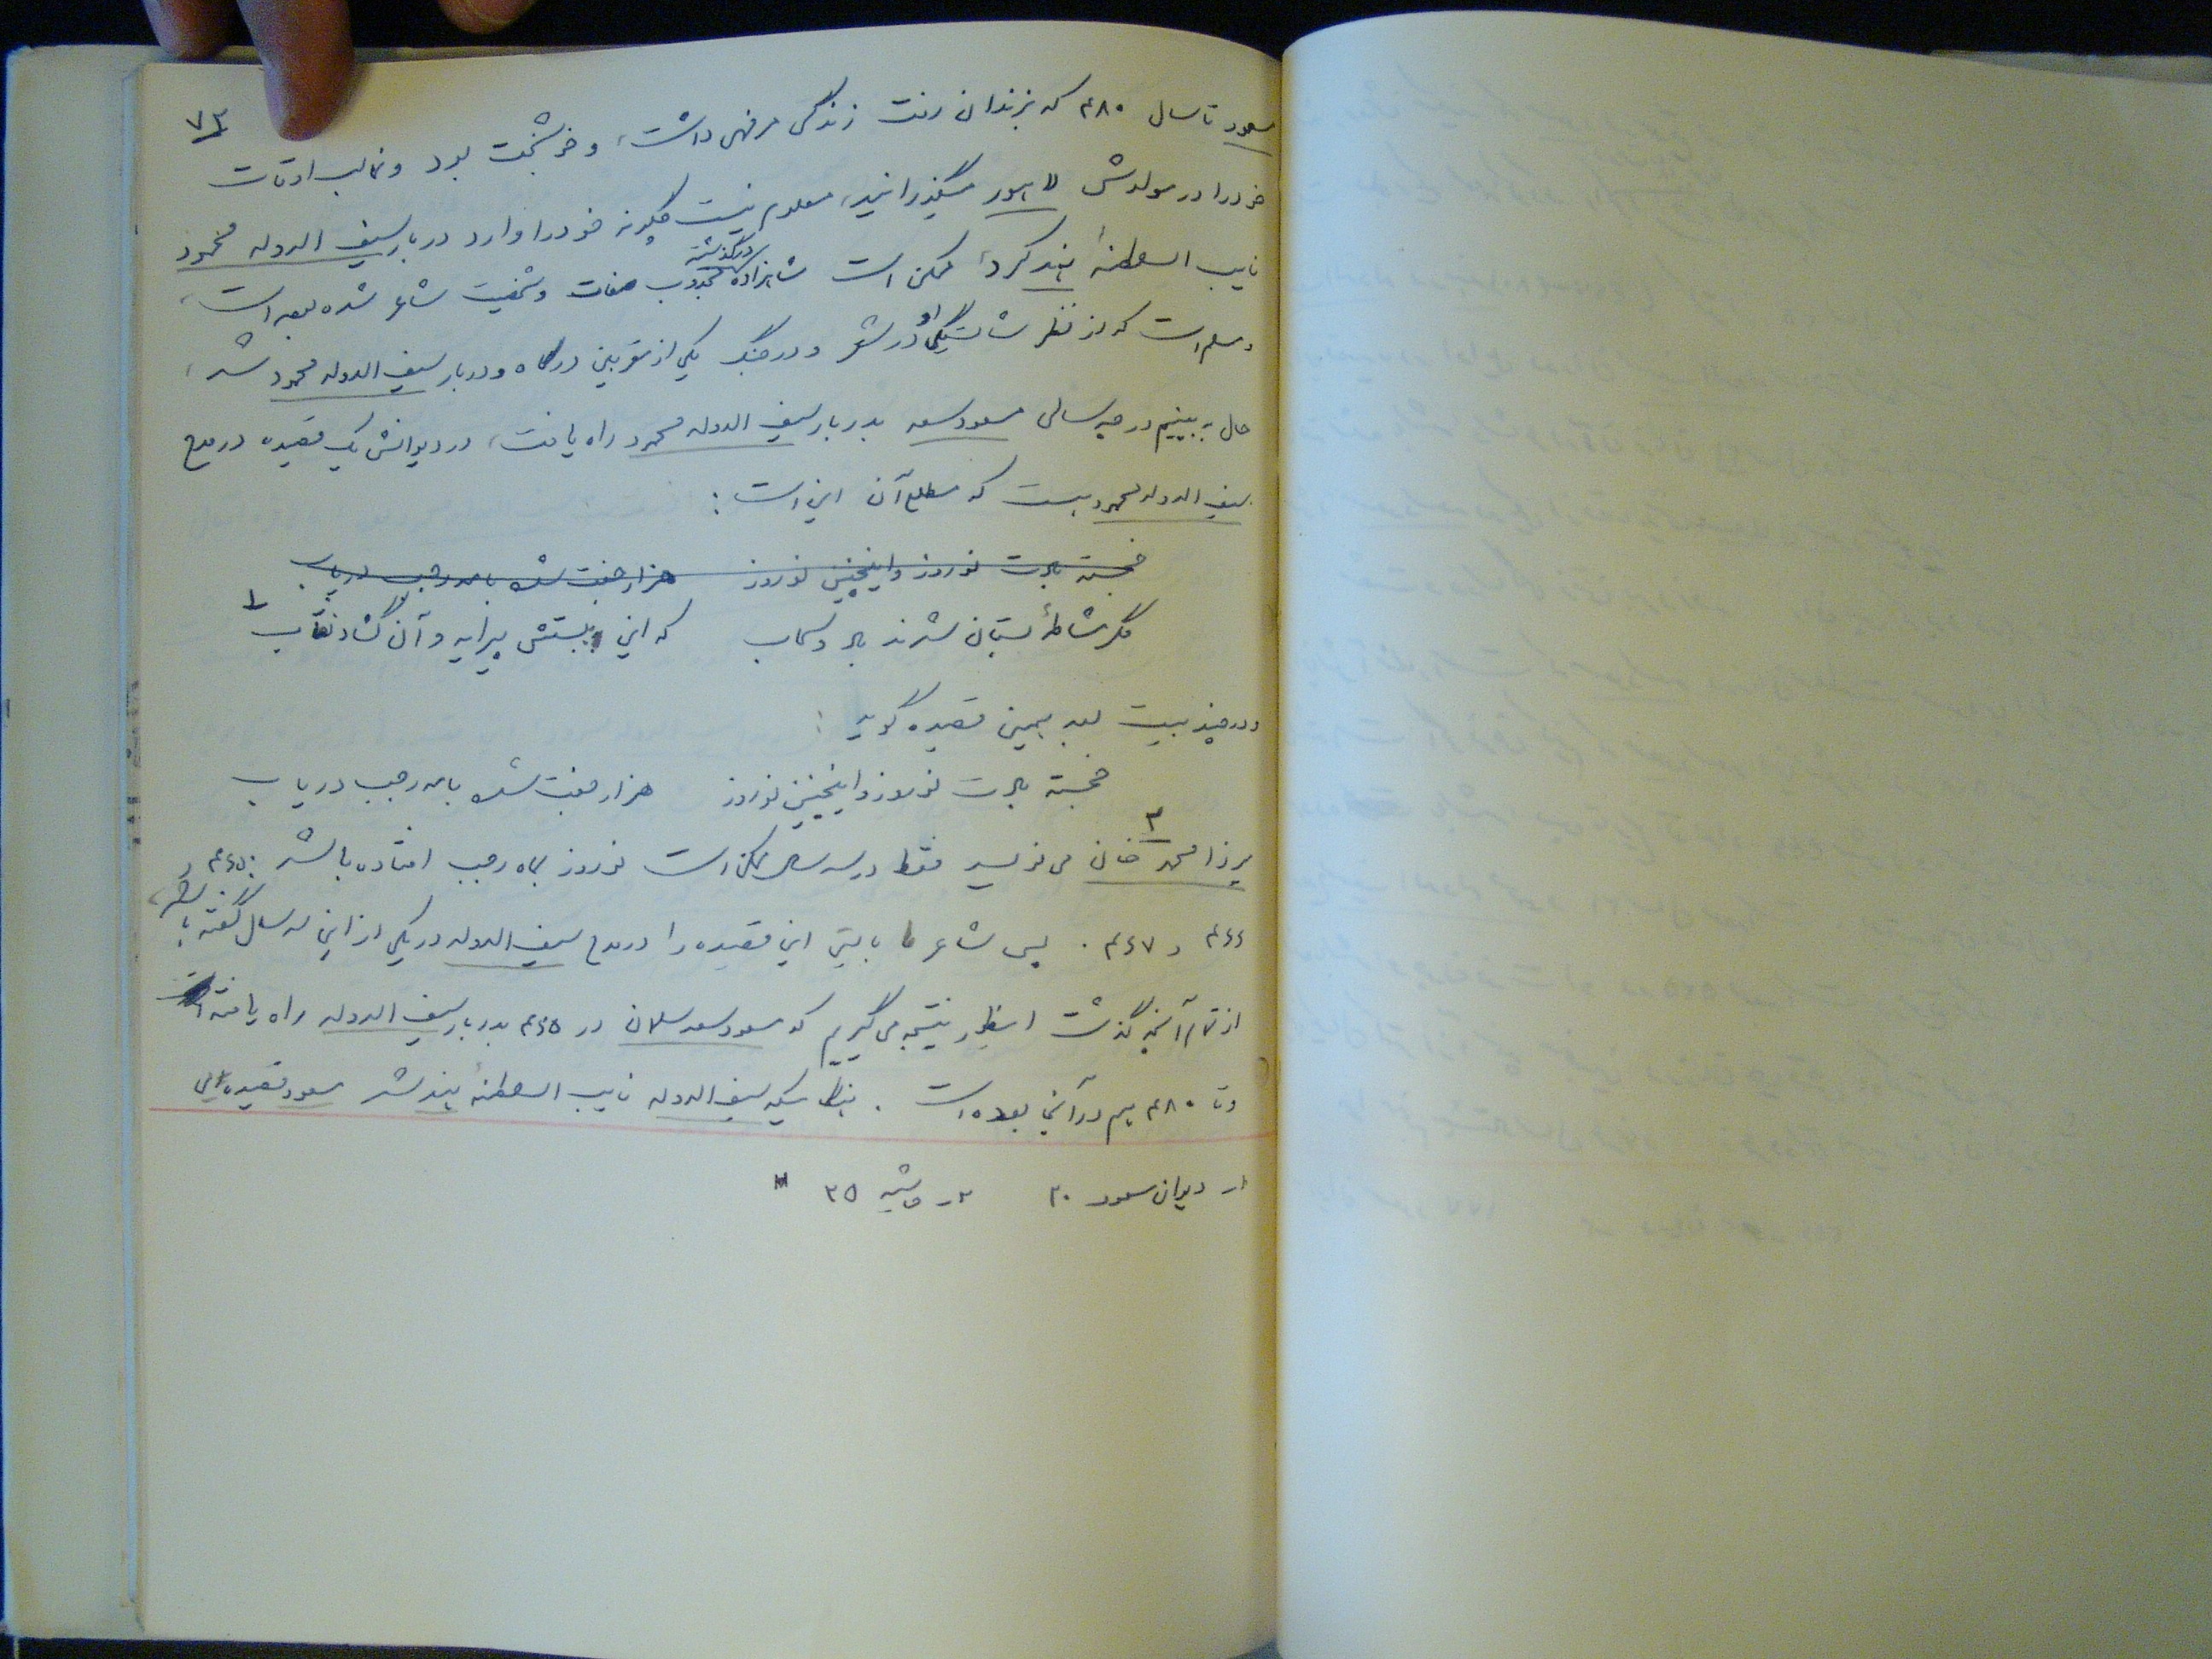 ۷۳
مسعود تا سال ۴۸۰ که بزندان رفت زندگی مرفهی داشت، و خوشبخت بود و غالب اوقات
خود را در مولدش لاهور میگذرانید، معلوم نیست چگونه خود را وارد دربار سیف الدوله محمود
نایب السلطنهٔ هند کرد، ممکن است شاهزاده مجذوب صفات و شخصیت شاعر شده بوده است،
مسلم است که از نظر شایستگی او در شعر و در جنگ یکی از مقربین درگاه و دربار سیف الدوله محمود شد،
حال ببینیم در چه سالی مسعود سعد بدربار سیف الدوله محمود راه یافت، در دیوانش یک قصیده در مدح
سیف الدوله محمود هست که مطلع آن این است :
خجسته بادت نوروز و اینچنین نوروز هزار جفت شده با مه رجب دریاب
مگر مشاطهٔ بستان شدند باد و سحاب که این ببستش پیرایه و آن گشاد نقاب ۱
و در چند بیت بعد همین قصیده گوید :
خجسته بادت نوروز و اینچنین نوروز هزار جفت شده با مه رجب دریاب
میرزا محمد خان ۲ می نویسد فقط در سه سال ممکن است نوروز بماه رجب افتاده باشد ۴۶۵ و
۴۶۶ و ۴۶۷ . پس شاعر بایستی این قصیده را در مدح سیف الدوله در یکی از این سه سال گفته باشد،
از تمام آنچه گذشت اینطور نتیجه می گیریم که مسعود سعد سلمان در ۴۶۵ بدربار سیف الدوله راه یافته است
و تا ۴۸۰ هم در آنجا بوده است . هنگامیکه سیف الدوله نایب السلطنهٔ هند شد مسعود قصیده ای
۱ـ دیوان مسعود ۳۰ ۲ـ حاشیه ۲۵